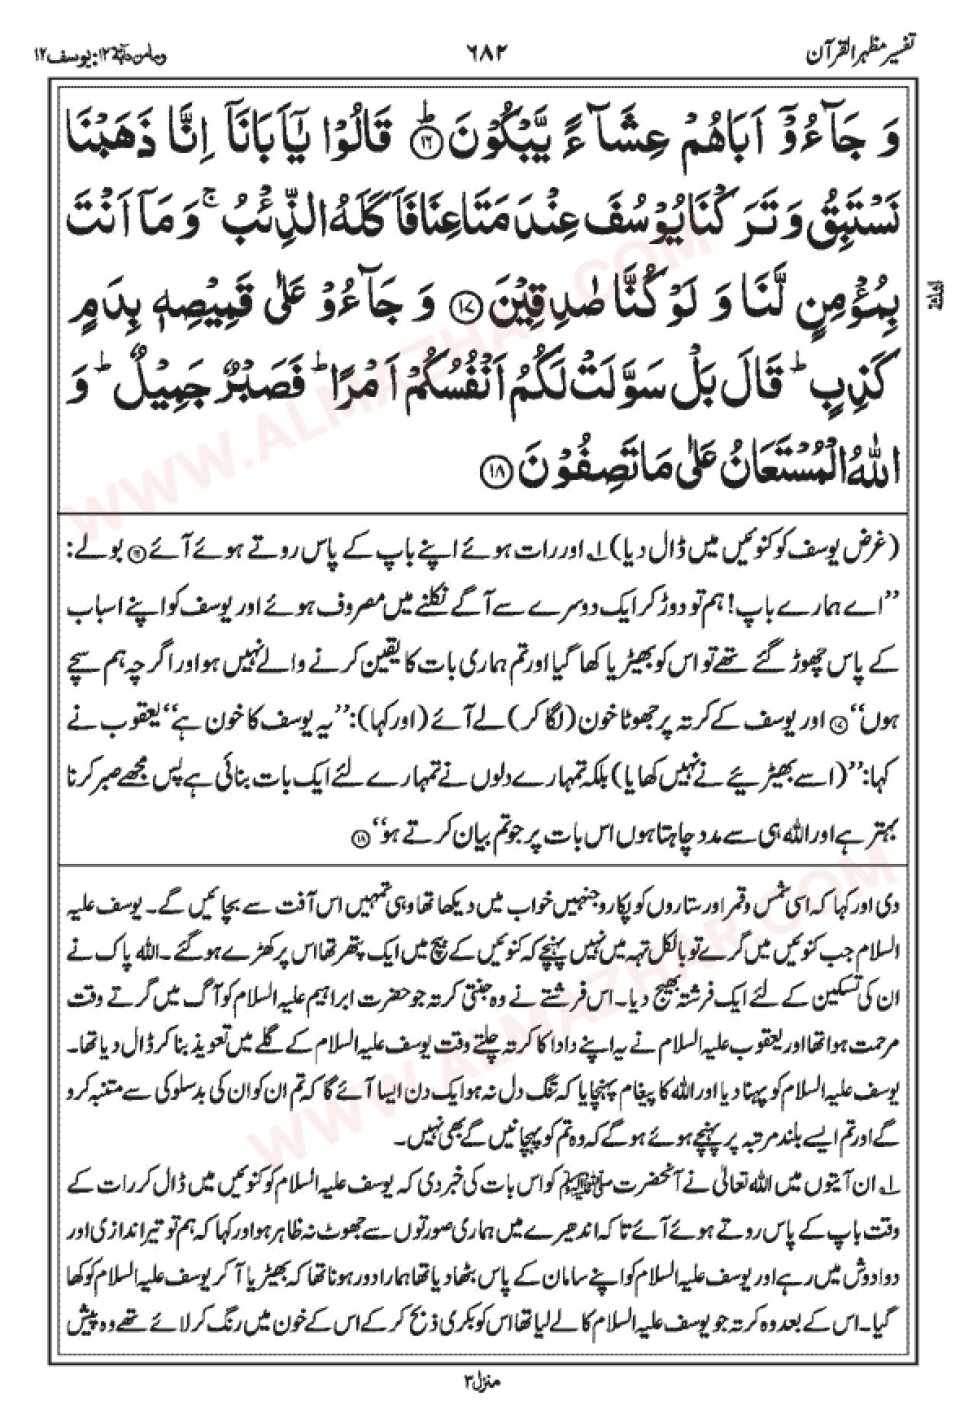 تفسیر مظہر القرآن
٦٨٢
ومامن دآبة ١٢: یوسف ١٢
وَ جَآءُوۡۤ اَبَاهُمۡ عِشَآءً يَّبۡكُوۡنَ ؕ‏ ﴿۱۶﴾ قَالُوۡا يٰۤاَبَانَاۤ اِنَّا ذَهَبۡنَا
نَسۡتَبِقُ وَ تَرَكۡنَا يُوۡسُفَ عِنۡدَ مَتَاعِنَا فَاَكَلَهُ الذِّئۡبُ ۚ وَ مَاۤ اَنۡتَ
بِمُؤۡمِنٍ لَّنَا وَ لَوۡ كُنَّا صٰدِقِيۡنَ ﴿۱۷﴾ وَ جَآءُوۡ عَلٰى قَمِيۡصِهٖ بِدَمٍ
كَذِبٍ ؕ قَالَ بَلۡ سَوَّلَتۡ لَكُمۡ اَنۡفُسُكُمۡ اَمۡرًا ؕ فَصَبۡرٌ جَمِيۡلٌ ؕ وَ
اللّٰهُ الۡمُسۡتَعَانُ عَلٰى مَا تَصِفُوۡنَ ﴿۱۸﴾
(غرض یوسف کو کنوئیں میں ڈال دیا) ۱؎ اور رات ہوئے اپنے باپ کے پاس روتے ہوئے آئے ﴿۱۶﴾ بولے:
’’اے ہمارے باپ! ہم تو دوڑ کر ایک دوسرے سے آگے نکلنے میں مصروف ہوئے اور یوسف کو اپنے اسباب
کے پاس چھوڑ گئے تھے تو اس کو بھیڑیا کھا گیا اور تم ہماری بات کا یقین کرنے والے نہیں ہو اور اگرچہ ہم سچے
ہوں‘‘ ﴿۱۷﴾ اور یوسف کے کرتہ پر جھوٹا خون (لگا کر) لے آئے (اور کہا): ’’یہ یوسف کا خون ہے‘‘ یعقوب نے
کہا: ’’(اسے بھیڑیئے نے نہیں کھایا) بلکہ تمہارے دلوں نے تمہارے لئے ایک بات بنائی ہے پس مجھے صبر کرنا
بہتر ہے اور اللہ ہی سے مدد چاہتا ہوں اس بات پر جو تم بیان کرتے ہو‘‘ ﴿۱۸﴾
دی اور کہا کہ اسی شمس و قمر اور ستاروں کو پکارو جنہیں خواب میں دیکھا تھا وہی تمہیں اس آفت سے بچائیں گے۔ یوسف علیہ
السلام جب کنوئیں میں گرے تو بالکل تہہ میں نہیں پہنچے کہ کنوئیں کے بیچ میں ایک پتھر تھا اس پر کھڑے ہوگئے۔ اللہ پاک نے
ان کی تسکین کے لئے ایک فرشتہ بھیج دیا۔ اس فرشتے نے وہ جنتی کرتہ جو حضرت ابراہیم علیہ السلام کو آگ میں گرتے وقت
مرحمت ہوا تھا اور یعقوب علیہ السلام نے یہ اپنے دادا کا کرتہ چلتے وقت یوسف علیہ السلام کے گلے میں تعویذ بنا کر ڈال دیا تھا۔
یوسف علیہ السلام کو پہنا دیا اور اللہ کا پیغام پہنچایا کہ تنگ دل نہ ہو ایک دن ایسا آئے گا کہ تم ان کو ان کی بدسلوکی سے متنبہ کرو
گے اور تم ایسے بلند مرتبہ پر پہنچے ہوئے ہوگے کہ وہ تم کو پہچانیں گے بھی نہیں۔
۱؎ ان آیتوں میں اللہ تعالیٰ نے آنحضرت ﷺ کو اس بات کی خبر دی کہ یوسف علیہ السلام کو کنوئیں میں ڈال کر رات کے
وقت باپ کے پاس روتے ہوئے آئے تاکہ اندھیرے میں ہماری صورتوں سے جھوٹ نہ ظاہر ہو اور کہا کہ ہم تو تیر اندازی اور
دوادوش میں رہے اور یوسف علیہ السلام کو اپنے سامان کے پاس بٹھا دیا تھا ہمارا دور ہونا تھا کہ بھیڑیا آ کر یوسف علیہ السلام کو کھا
گیا۔ اس کے بعد وہ کرتہ جو یوسف علیہ السلام کا لے لیا تھا اس کو بکری ذبح کر کے اس کے خون میں رنگ کر لائے تھے وہ پیش
منزل ٣
WWW.ALMAZHAR.COM
WWW.ALMAZHAR.COM